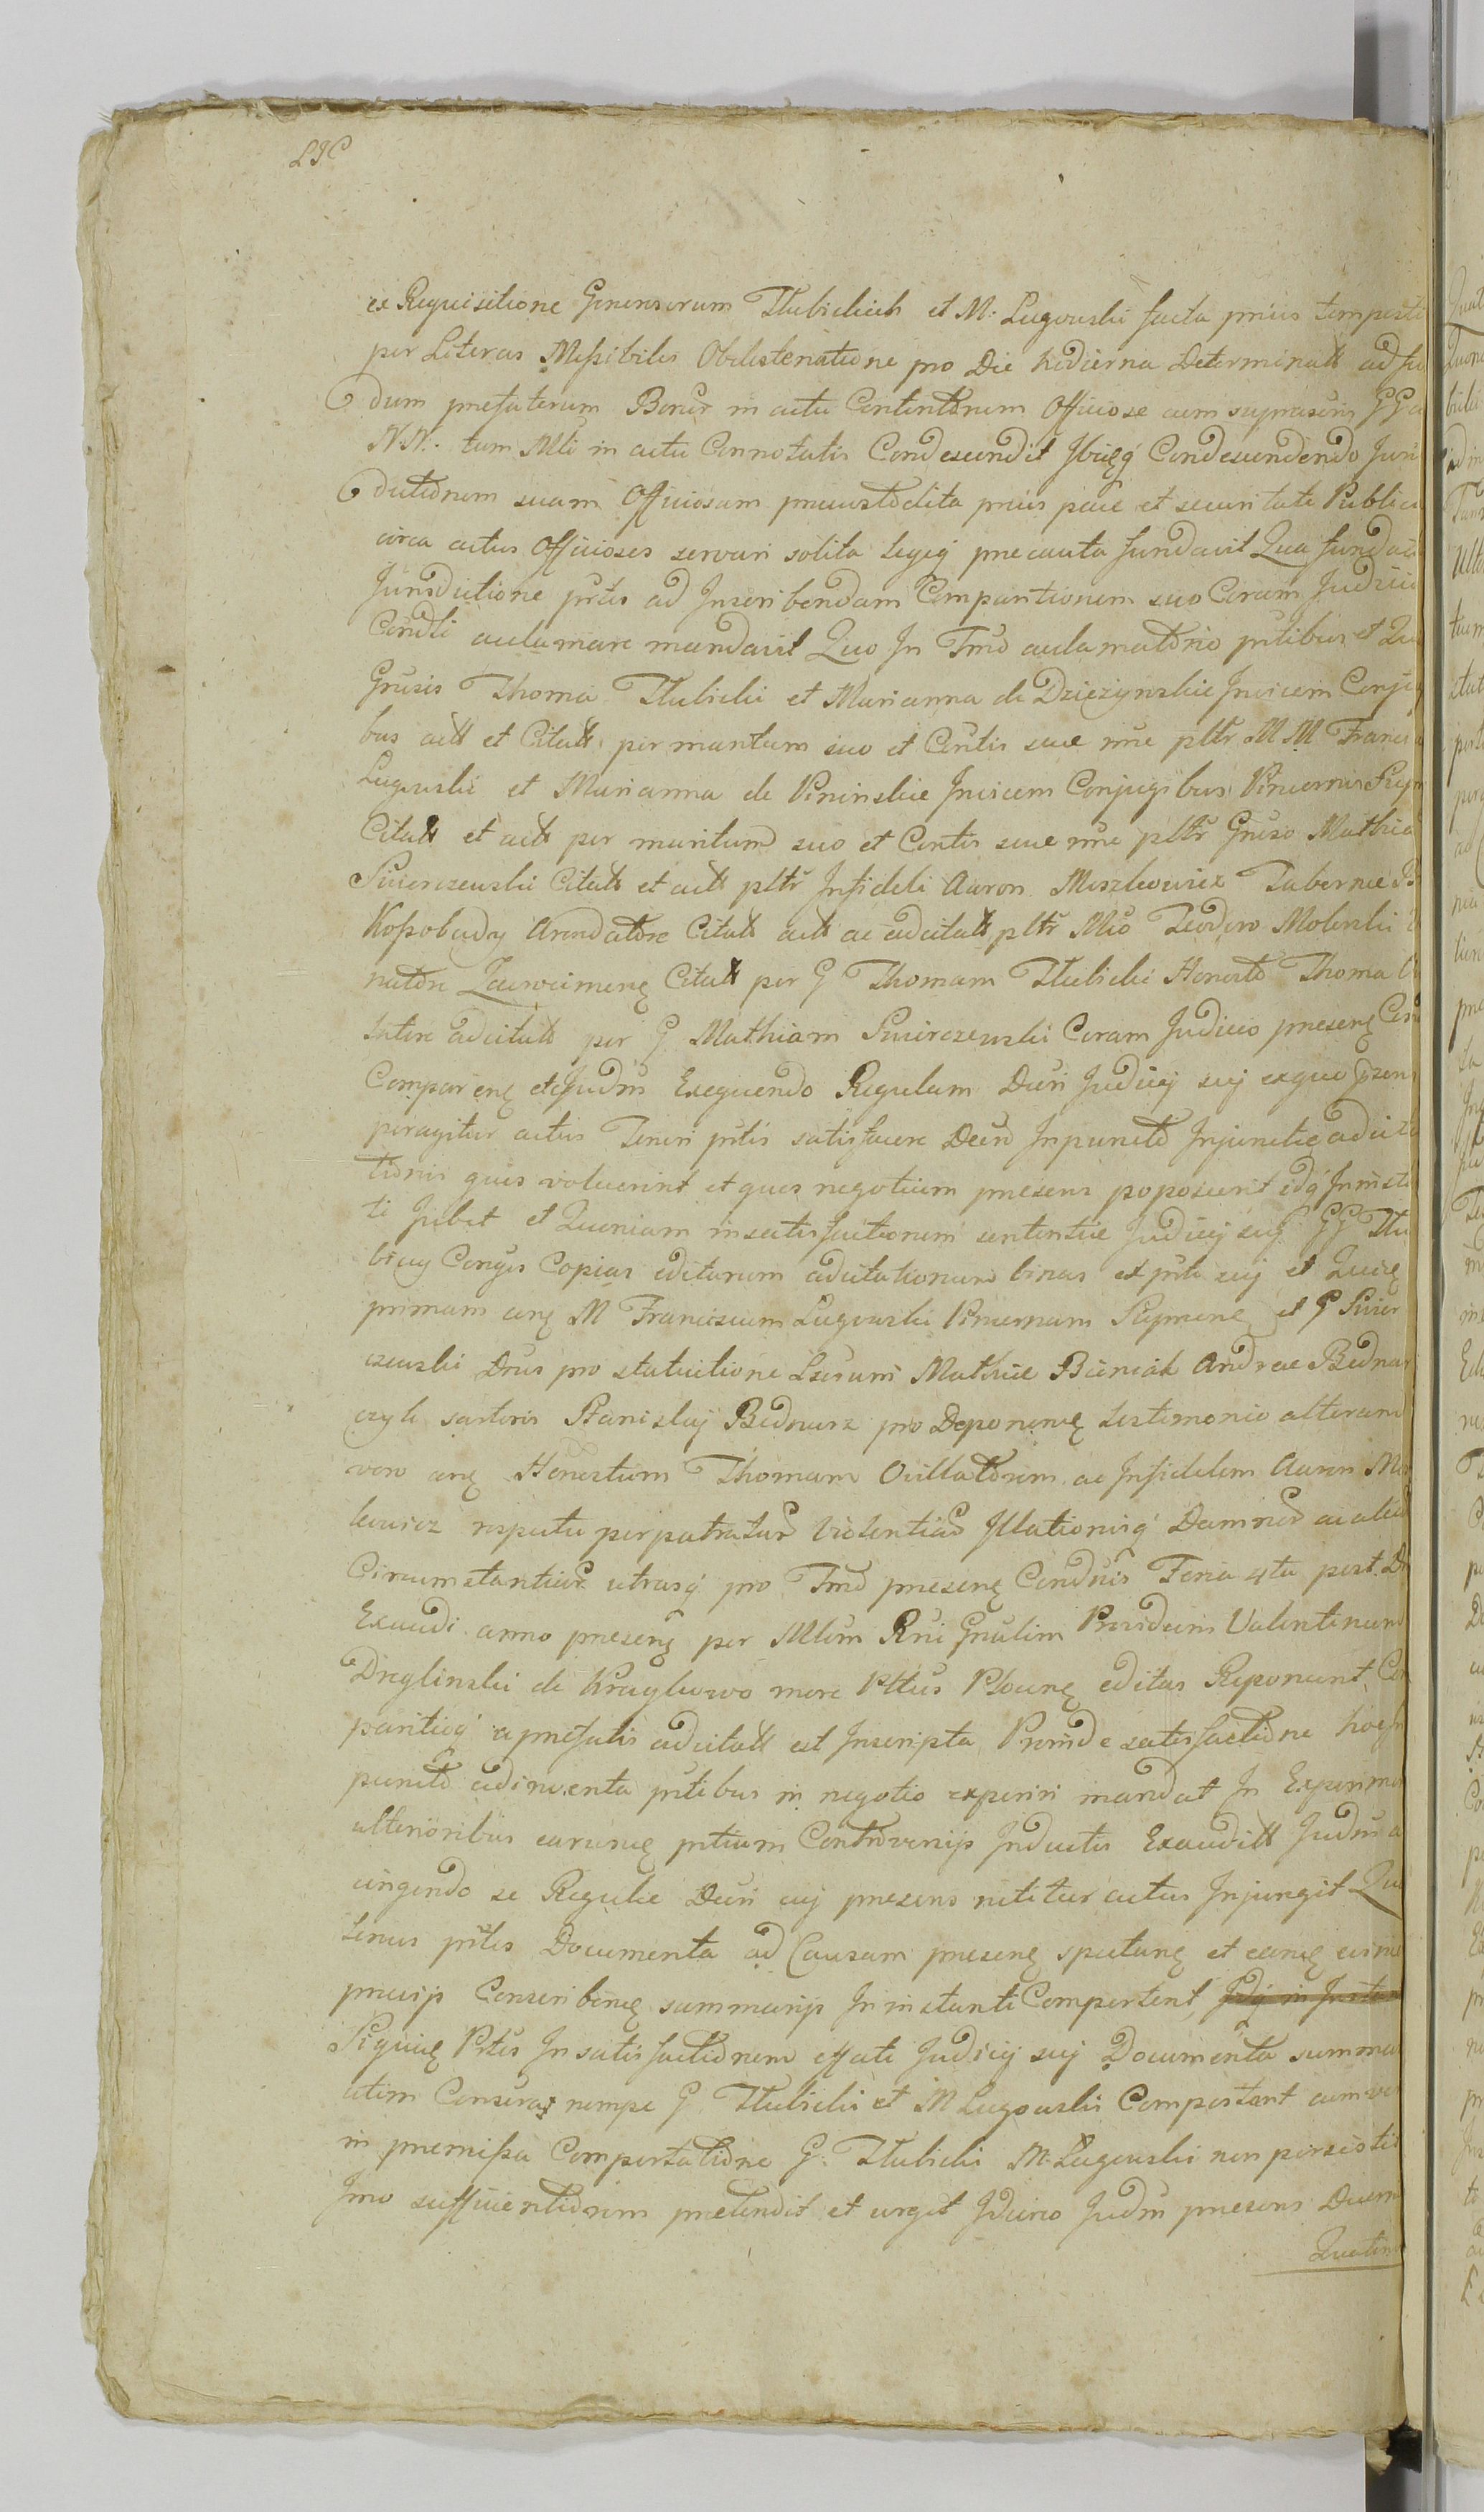 LJC
ex Requisitione Generosorum Tłubickich et M: Lugowski facta prius tempesti
per Literas Missibiles Obtestatione pro Die hodierna Determinatt ad fu
dum prefatorum Bonor in actu Contentorum Officiose cum suprascrin GG
N.N. tum Mli in actu Connotatis Condescendit Ibiq Condescendendo Juris
dictionem suam Officiosam precustodita prius pace et securitate Publica
circa actus Officioses servari solita legeq precauta fundavit Qua fundata
Jurisdictione prtes ad Inscribendam Comparitionem suo Coram Judicio
Condli acclamare mandavit Quo In Tmo acclamatorio prtibus et
Grusis Thoma Tłubicki et Marianna de Dzieżynskie Invicem Conjugi
bus actt et Citatt per maritum suo et Contis sue nne pltr M M Franci
Lugowski et Marianna de Pininskie Invicem Conjugibus Pincernis
Citatt et actt per maritum suo et Contis sue nne pltr Gruso Mathia
Swierczewski Citatt et actt pltr Infideli Aaron Moszkowicz Taberne
Kossobudy Arendatore Citatt actt ac adcitatt pltr Mlo Teodoro Molenski
natore Zawcrimen Citatt per G Thomam Tłubicki Honesto Thoma
latore adcitatt per G Mathiam Swierczewski Coram Judicio presen
Comparen et Judm Exequendo Regulam Dcri Judicij sui exque
peragitur actus Teneri prtis satisfacere Dcro Inpuncto Injuncte adcita
tionis quis voluerint et ques negotium presens poposcerit idq Ininstan
ti Jubet et Quoniam insatisfactionem sententie Judicij sui GG Tłu
biccy Conjes Copias editarum adcitationum binas ex prte sui et
primam erg M Franciscum Lugowski Pincernam et G Swier
czewski Drus pro statuitione Laborum Mathie Bieniak Andree Bednar
czyk sartoris Stanislai Bednarz pro Deponend testimonio alteram
vero erg Honestum Thomam Ovillatorem ac Infidelem Aaron Mos
kowicz respectu perpetratar Violentiar Illationisq Damnor ac aliar
Circumstantiar utrasq pro Tmo presen Condnis Feria 4ta post D
Exaudi anno presen per Mlum Rni Gnalem Providum Valentinum
Dreglinski de Kraglewo more Plttus Plocen editas Reponunt Com
paritioq a prefatis adcitatt est Inscripta Proinde satisfactione hocin
puncto adinventa prtibus in negotio experiri mandat In Experimen
ulterioribus earunde prtium Controversijs Inductis Exauditt Judm a
cingendo se Regule Dcri cuj presens nititur actus Injungit Qua
tenus prtes Documenta ad Causam presen spectan et eand
previjs Conscriben summarijs Ininstanti Comportent
Siquidem Prtes Insatisfactionem effati Judicij sui Documenta summa
atim Conscra nempe G Tłubicki et M Lugowski Comportant cum vero
in premissa Comportatione G: Tłubicki M. Lugowski non persistit
Imo sufficientiorem pretendit et urget Idcirco Judm presens Dcem
Quatenus